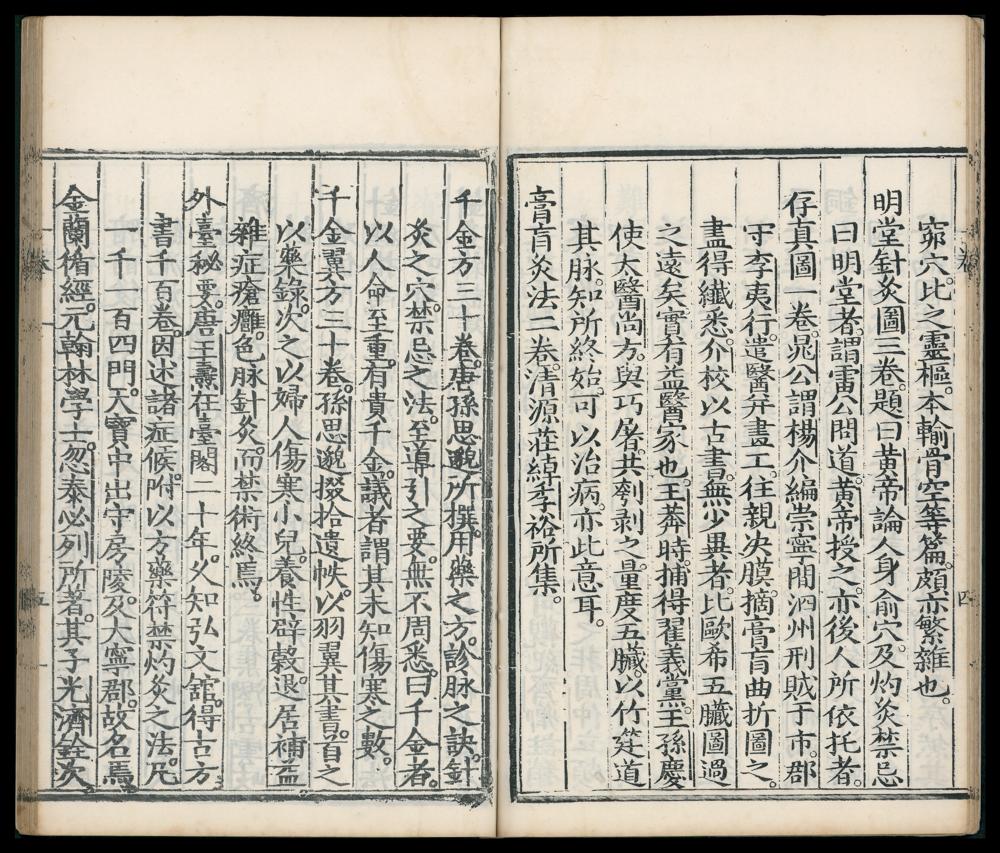 窌穴。比之靈樞。本輸骨空等篇。頗亦繁雜也。
明堂針灸圖三卷。題曰黃帝論人身俞穴。及灼灸禁忌
曰明堂者。謂雷公問道。黃帝授之。亦後人所依托者。
存真圖一卷。晁公謂楊介編崇寧間泗州刑賊于市。郡
守李夷行。遣醫并畫工。往親决膜。摘膏肓曲折圖之。
盡得纖悉。介校以古書。無少異者。比歐希五臟圖過
之遠矣。實有益醫家也。王莽時。捕得翟義黨。王孫慶
使太醫尚方。與巧屠。共刳剥之。量度五臟。以竹筳道
其脉。知所終始。可以治病。亦此意耳。
膏肓灸法二卷。清源莊綽季裕所集。
卷一
四
千金方三十卷。唐孫思邈所撰。用藥之方。診脉之訣。針
灸之穴。禁忌之法。至導引之要。無不周悉。曰千金者。
以人命至重。有貴千金。議者謂其未知傷寒之數。
千金翼方三十卷。孫思邈掇拾遺帙。以羽翼其書。首之
以藥錄。次之以婦人傷寒小兒。養性辟穀。退居補益。
雜症瘡癰。色脉針灸。而禁術終焉。
外臺秘要。唐王燾在臺閣二十年。久知弘文舘。得古方
書千百卷。因述諸症候。附以方藥符禁灼灸之法。凡
一千一百四門。天寶中出守房陵。及大寧郡。故名焉。
金蘭循經。元翰林學士。忽泰必列所著。其子光濟銓次